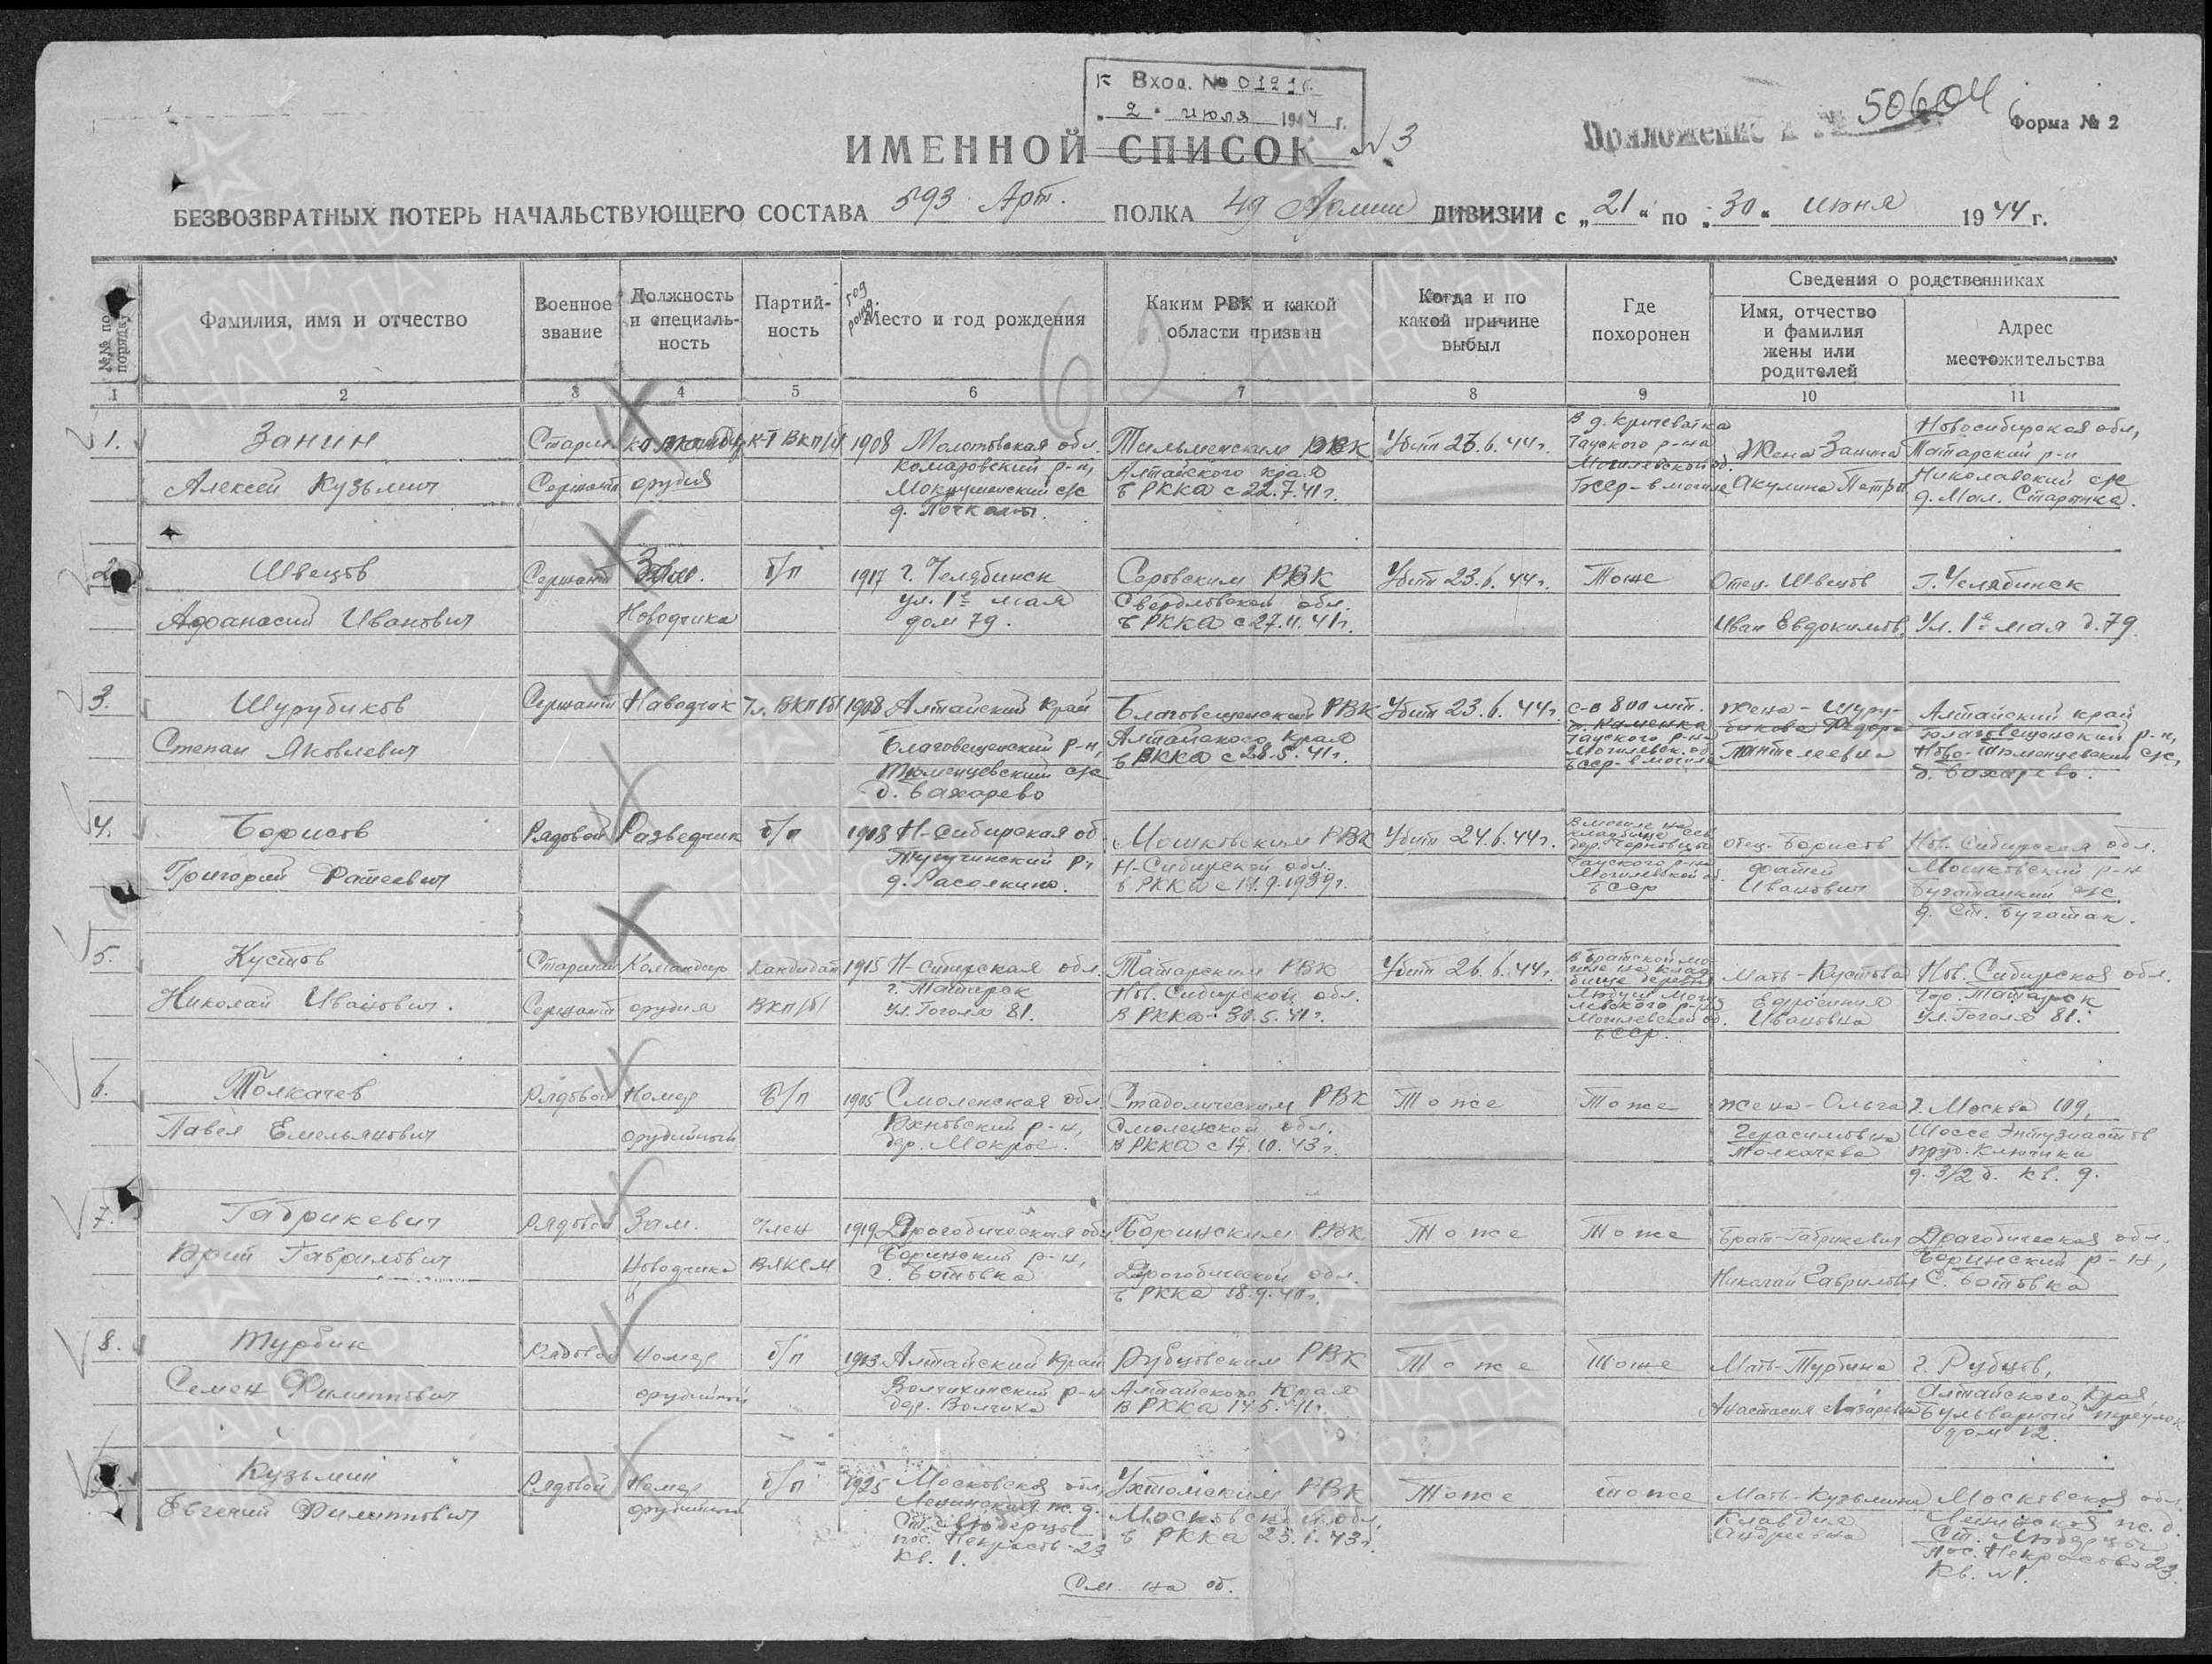 Вход. №
2 июля 1944 г.
Приложение к № 50604
Форма № 2
ИМЕННОЙ СПИСОК №3
БЕЗВОЗВРАТНЫХ ПОТЕРЬ НАЧАЛЬСТВУЮЩЕГО СОСТАВА 593 Арт. ПОЛКА 49 Армии ДИВИЗИИ с „21" по „30" июня 1944 г.
№№ по порядку
Фамилия, имя и отчество
Военное звание
Должность и специальность
Партийность
год рожд.
Место и год рождения
Каким РВК и какой области призван
Когда и по какой причине выбыл
Где похоронен
Сведения о родственниках
Имя, отчество и фамилия жены или родителей
Адрес местожительства
1 2 3 4 5 6 7 8 9 10 11
62
1. Занин
Алексей Кузьмич
Сержант орудия
к-т ВКП/б
1908 Молотовская обл.
Комаровский р-н,
Алтайского края
в РККА с 22.7.41г.
Убит 23.6.44г.
Чауского р-на
Могилевской об.
БССР - в могиле
Жена Занина
Акулина Петр
Новосибирская обл,
Татарский р-н
Николаевский с/с
2. Швецов
Афанасий Иванович
Сержант
Зам.
Наводчика
б/п
1917 г. Челябинск
ул. 1е мая
дом 79.
Серовским РВК
Свердловской обл.
в РККА с 27.11.41г.
Убит 23.6.44г.
Тоже
Отец. Швецов
Иван Евдокимов.
г. Челябинск
Ул. 1е мая д.79.
3. Шурубиков
Степан Яковлевич
Сержант
Наводчик
Чл. ВКП/б/
1908 Алтайский край
Благовещенский р-н,
Тюменцевский с/с
д. Вахарево
Благовещенский РВК
Алтайского края
в РККА с 28.5.41г.
Убит 23.6.44г
с-в 800 мт.
д. Каменка
Чауского р-на
Могилевск. об.
БССР - в могиле
жена - Шуру-
бикова Федора
Пантелеевна
Алтайский край
Благовещенский р-н,
Ново-Тюменцевский с/с,
д. Вахарево.
4. Борисов
Григорий Фатеевич
Рядовой
Разведчик
б/п
1918 Н-Сибирская об
р-н
Мошковским РВК
Н-Сибирской обл.
в РККА с
Убит 24.6.44г.
В могиле на
кладбище сев.
Чауского р-на
Могилевской об.
БССР
отец. Борисов
Фатей
Иванович
Нов. Сибирская обл.
Мошковский р-н
д. Ст. Бугатак.
5. Кустов
Николай Иванович.
Старший
Сержант
Командир
орудия
Кандидат
ВКП/б/
1915 Н-Сибирская обл.
г. Татарск
ул. Гоголя 81.
Татарским РВК
Нов. Сибирской обл.
в РККА - 30.5.41г.
Убит 26.6.44г.
В братской мо-
гиле на клад-
бище деревни
Могилевской об.
БССР.
Мать - Кустова
Ефросиния
Ивановна
Нов. Сибирская обл.
гор. Татарск
ул. Гоголя 81.
6. Толкачев
Павел Емельянович
Рядовой
Номер
орудийный
б/п
1905 Смоленская обл.
дер. Мокрое.
РВК
Смоленской обл.
в РККА с 17.10.43г.
Тоже
Тоже
жена - Ольга
Герасимовна
Толкачева
г. Москва 109,
Шоссе Энтузиастов
пруд. Ключики
7. Габрикевич
Юрий Гаврилович
Рядовой
Зам.
Наводчика
Член
ВЛКСМ
1919 Дрогобическая обл
Боринский р-н,
с. Ботовка
Боринским РВК
Дрогобической обл.
в РККА
Тоже
Тоже
Брат-Габрикевич
Николай Гаврилович
Дрогобическая обл.
Боринский р-н,
с. Ботовка
8. Турбин
Семен Филиппович
Рядовой
Номер
орудийный
б/п
Алтайский край
Волчихинский р-н
дер. Волчиха
Рубцовским РВК
Алтайского Края
в РККА
Тоже
Тоже
Мать-Турбина
Анастасия Лазаревна
г. Рубцов,
Алтайского края
Бульварный переулок
дом 12.
Кузьмин
Евгений Филиппович
Рядовой
Номер
орудийный
б/п
1925 Московская обл,
Ленинская ж.д.
Ст. Люберцы
пос. Некрасов-23
кв. 1.
Ухтомским РВК
Московской обл.
в РККА 25.1.43г.
Тоже
тоже
Мать-Кузьмина
Клавдия
Андреевна
Московская обл.
Ленинская ж.д.
Ст. Люберцы
пос. Некрасова 23.
кв. №1.
См. на об.
ПАМЯТЬ НАРОДА